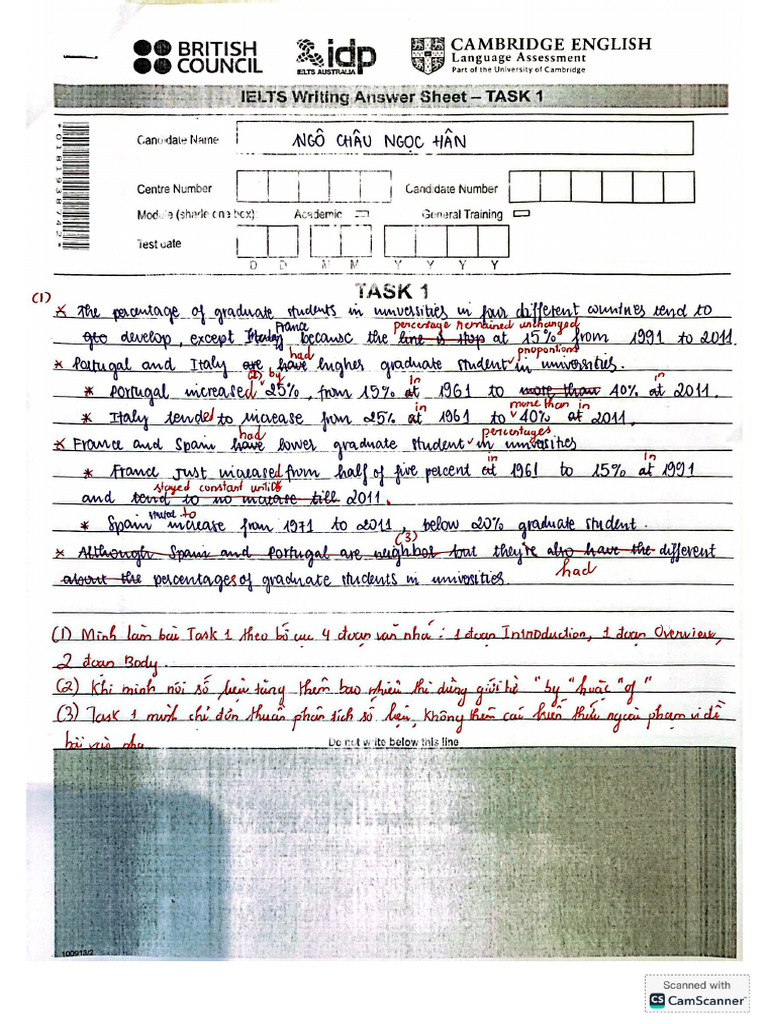 BRITISH COUNCIL
idp
IELTS AUSTRALIA
CAMBRIDGE ENGLISH
Language Assessment
Part of the University of Cambridge
IELTS Writing Answer Sheet – TASK 1
*0181938742*
Candidate Name NGÔ CHÂU NGỌC HÂN
Centre Number Candidate Number
Module (shade one box): Academic General Training
Test date
D D M M Y Y Y Y
TASK 1
(1) * The percentage of graduate students in universities in four different countries tend to
France percentage remained unchanged
develop, except Italy because the line is stop at 15% from 1991 to 2011.
had proportions
* Portugal and Italy are have highes graduate student in universities.
(2) by in in
* Portugal increased 25%, from 15% at 1961 to more than 40% at 2011.
in more than in
* Italy tended to increase from 25% at 1961 to 40% at 2011.
had percentages
* France and Spain have lower graduate student in universities
in in
* France Just increased from half of five percent at 1961 to 15% at 1991
stayed constant until
and tend to no increase till 2011.
started to
* Spain increase from 1971 to 2011, below 20% graduate student.
(3)
* Although Spain and Portugal are neighbor but they're also have the different
had
about the percentages of graduate students in univosities.
(1) Mình làm bài Task 1 theo bố cục 4 đoạn văn nhá: 1 đoạn Introduction, 1 đoạn Overview,
2 đoạn Body.
(2) Khi mình nói số liệu tăng thêm bao nhiêu thì dùng giới từ "by" hoặc "of"
(3) Task 1 mình chỉ đơn thuần phân tích số liệu, không thêm các kiến thức ngoài phạm vi đề
bài vào nha
Do not write below this line
100913/2
Scanned with
CS CamScanner